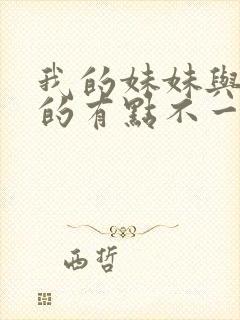 我的妹妹與
的有點不一
西哲